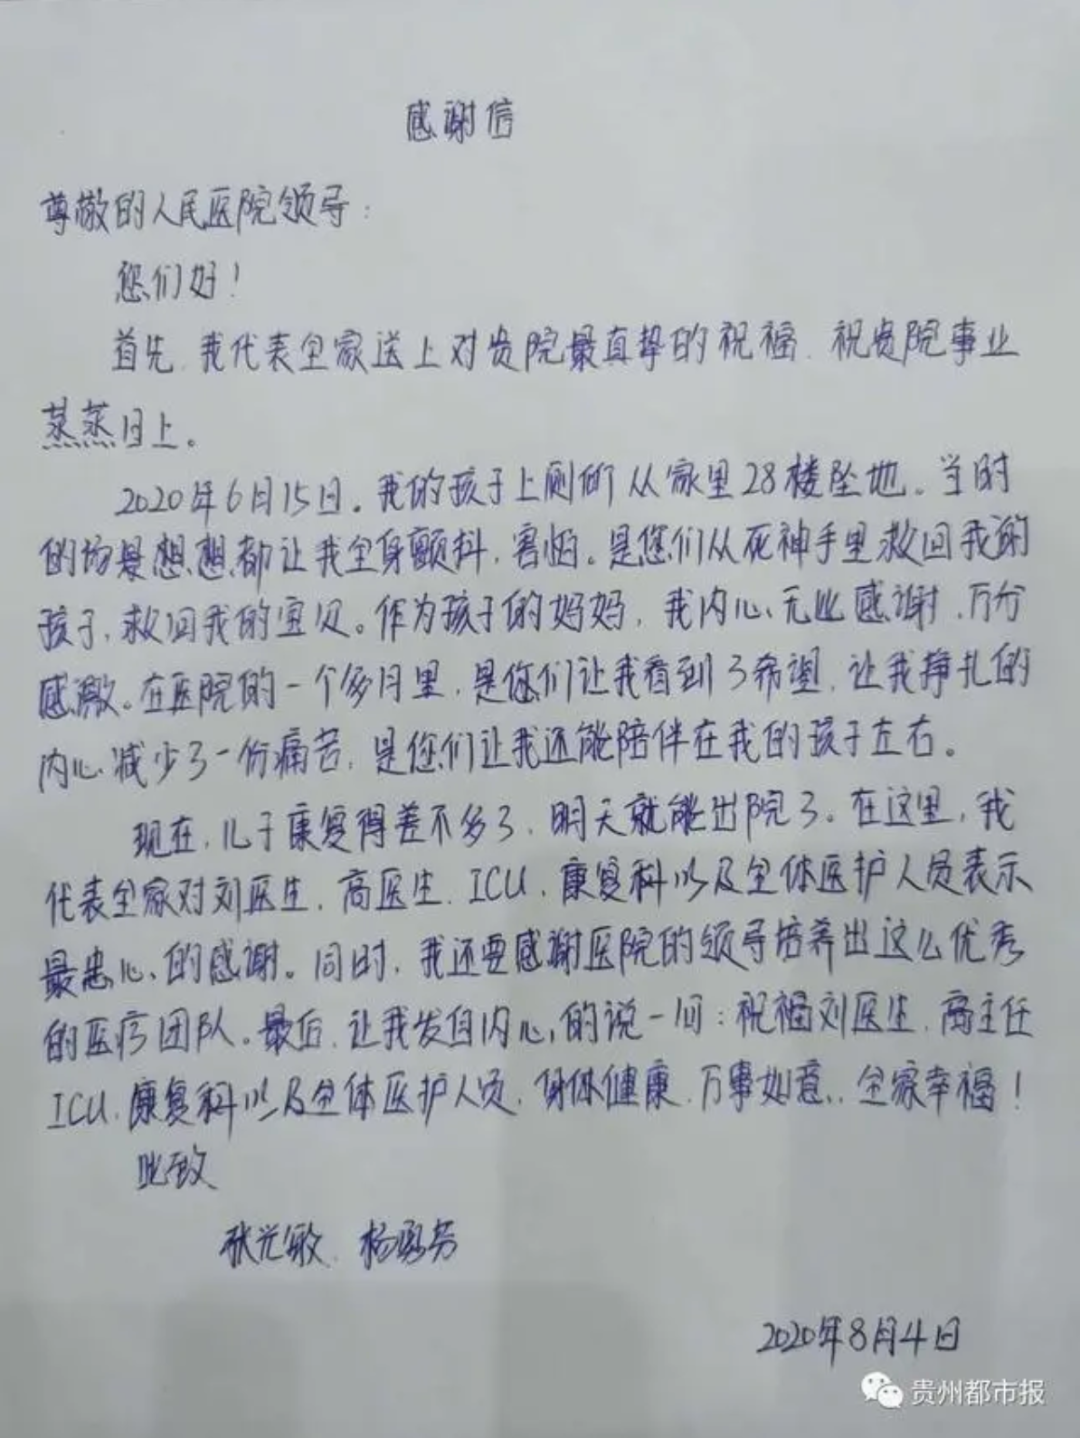 感谢信
尊敬的人民医院领导：
您们好！
首先，我代表全家送上对贵院最真挚的祝福，祝贵院事业
蒸蒸日上。
2020年6月15日。我的孩子上厕所从家里28楼坠地。当时
的场景想想都让我全身颤抖，害怕。是您们从死神手里救回我的
孩子，救回我的宝贝。作为孩子的妈妈，我内心无比感谢，万分
感激。在医院的一个多月里，是您们让我看到了希望，让我挣扎的
内心减少了一份痛苦，是您们让我还能陪伴在我的孩子左右。
现在，儿子康复得差不多了，明天就能出院了。在这里，我
代表全家对刘医生，高医生，ICU，康复科以及全体医护人员表示
最忠心的感谢。同时，我还要感谢医院的领导培养出这么优秀
的医疗团队。最后，让我发自内心的说一句：祝福刘医生，高主任
ICU，康复科以及全体医护人员，身体健康，万事如意，全家幸福！
此致
张光敏、杨芬
2020年8月4日
贵州都市报